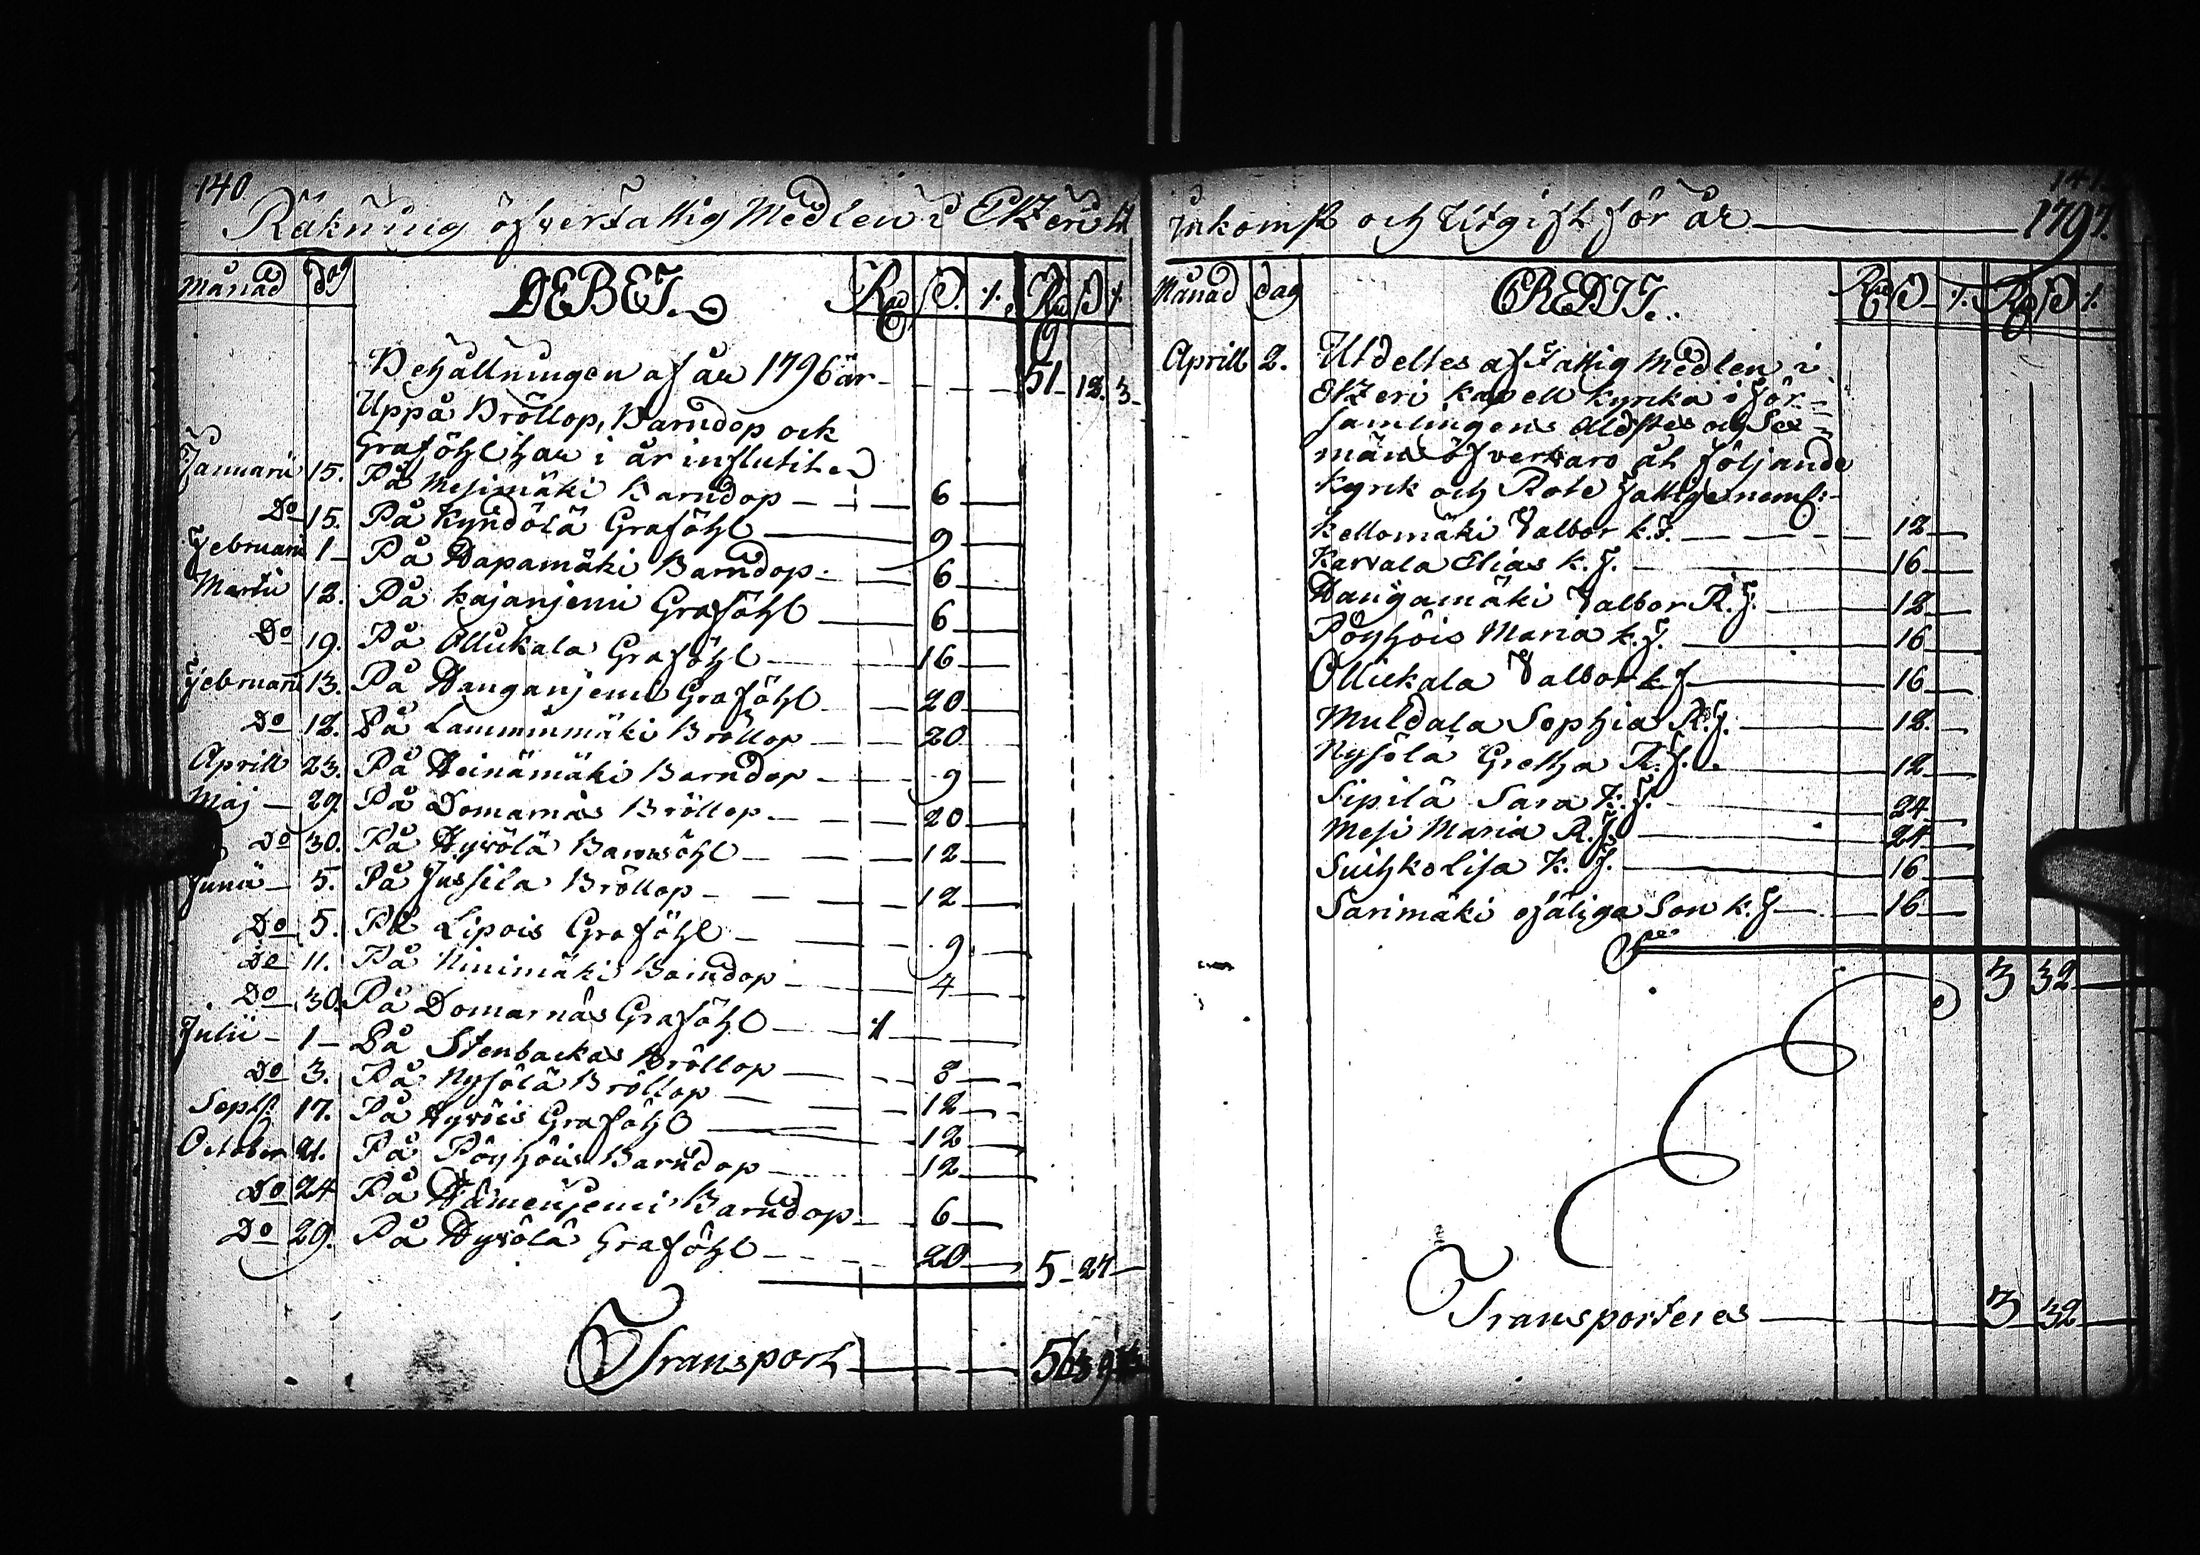 140.
Räkning öfver Fattig Medlen i Etzeri
Månad dag DEBET. Rd ß. r. Rd ß r.
Behållningen af år 1796 är 51 12. 3
Uppå Bröllop, Barndop ock
Graföhl har i år influtit
Januarii 15. På Mesimäki Barndop 6
Do 15. På Kyndölä Graföhl 9
Februarii 1 På Hapamäki Barndop 6
Martii 12. På Kajanjemi Graföhl 6
Do 19. På Ollukala Graföhl 16
Februarii 13. På Hanganjemi Graföhl 20
Do 12. På Lamminmäki Bröllop 20
Aprill 23. På Heinämäki Barndop 9
Maj 29. På Domarnäs Bröllop 20
Do 30. På Hyvölä Barnsöhl 12
Junii 5. På Jussila Bröllop 12
Do 5. På Lipois Graföhl 9
Do 11. På Ninimäki Barndop 4
Do 30. På Domarnäs Graföhl 1
Julii 1 På Stenbackas Bröllop 8
Do 3. På Nysölä Bröllop 12
Sept. 17. På Hyvöis Graföhl 12
October 21. På Pöyhöis Barndop 12
Do 24 På Hämenjemi Barndop 6
Do 29. På Hyvölä Graföhl 20 5 27
Transport 56 39 3
141.
Inkomst och Utgift för år 1797.
Månad dag CREDIT. Rd ß r. Rd ß r.
Aprill 2. Utdeltes af Fattig Medlen i
Etzeri kapell kyrka i för-
samlingens Äldstes och Sex-
mäns öfvervaro åt följande
Kyrk och Rote fattige neml:
Kellomäki Valbor k.F. 12
Karvala Elias k.F. 16
Hangamäki Valbor R.F. 12
Pöyhöis Maria k.F. 16
Ollukala Valbor k.F. 16
Muldala Sophia R.F. 12.
Nysölä Gretha R.F. 12
Sipilä Sara K.F. 24
Mesi Maria R.F. 24
Suihko Lisa K.F. 16
Sarimäki ofäliga Son k.F 16
3 32
Transporteres 3 32